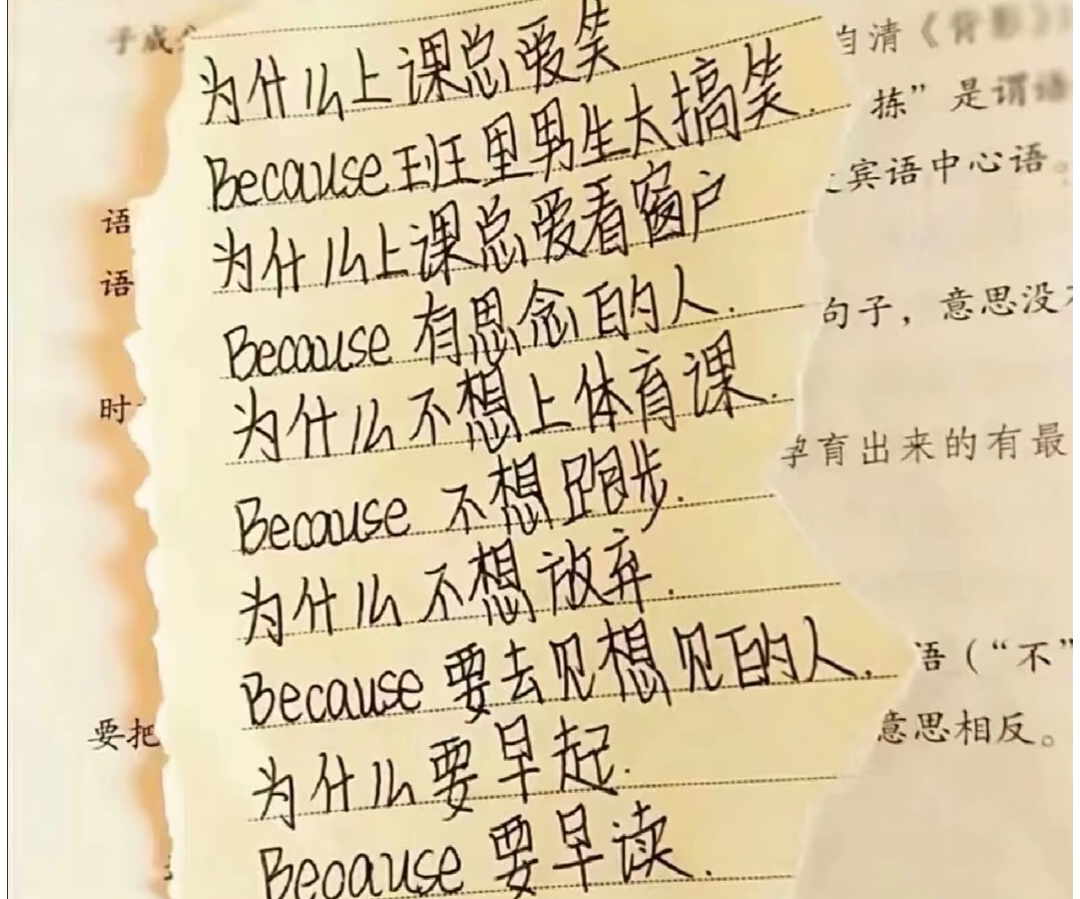 子成
自清《背影》
为什么上课总爱笑
拣”是谓语
Because班里男生太搞笑.
宾语中心语。
为什么上课总爱看窗户
语
语
Because 有思念的人.
句子，意思没
为什么不想上体育课.
时
孕育出来的有最
Because 不想跑步.
为什么不想放弃.
Because 要去见想见的人.
语（“不”
要把
意思相反。
为什么要早起.
Because 要早读.